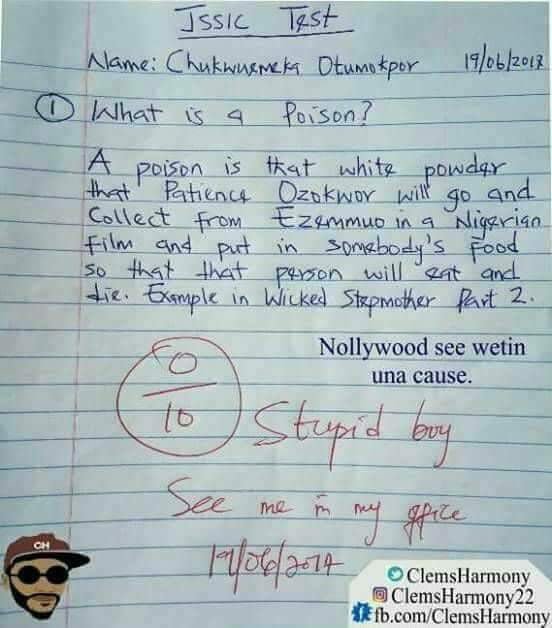 JSS1C Test
Name: Chukwuemeka Otumokpor 19/06/2017
① What is a Poison?
A poison is that white powder
that Patience Ozokwor will go and
Collect from Ezemmuo in a Nigerian
film and put in somebody's food
so that that person will eat and
die. Example in Wicked Stepmother Part 2.
Nollywood see wetin
una cause.
0
10
Stupid boy
See me in my office
19/06/2017
CH
ClemsHarmony
ClemsHarmony22
fb.com/ClemsHarmony